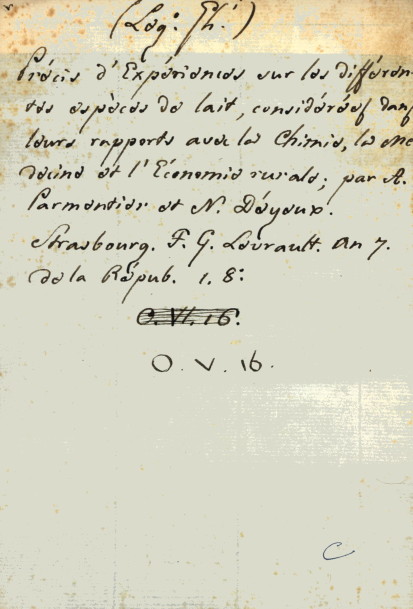 (Leg: Th:)
Précis d'Expériences sur les différen-
tes espèces de lait, considérées dans
leurs rapports avec la Chimie, la Mé-
decine et l'Économie rurale; par A.
Parmentier et N. Déyeux.
Strasbourg. F. G. Levrault. An 7.
de la Répub. 1. 8:
O. VI. 16.
O. V. 16.
C